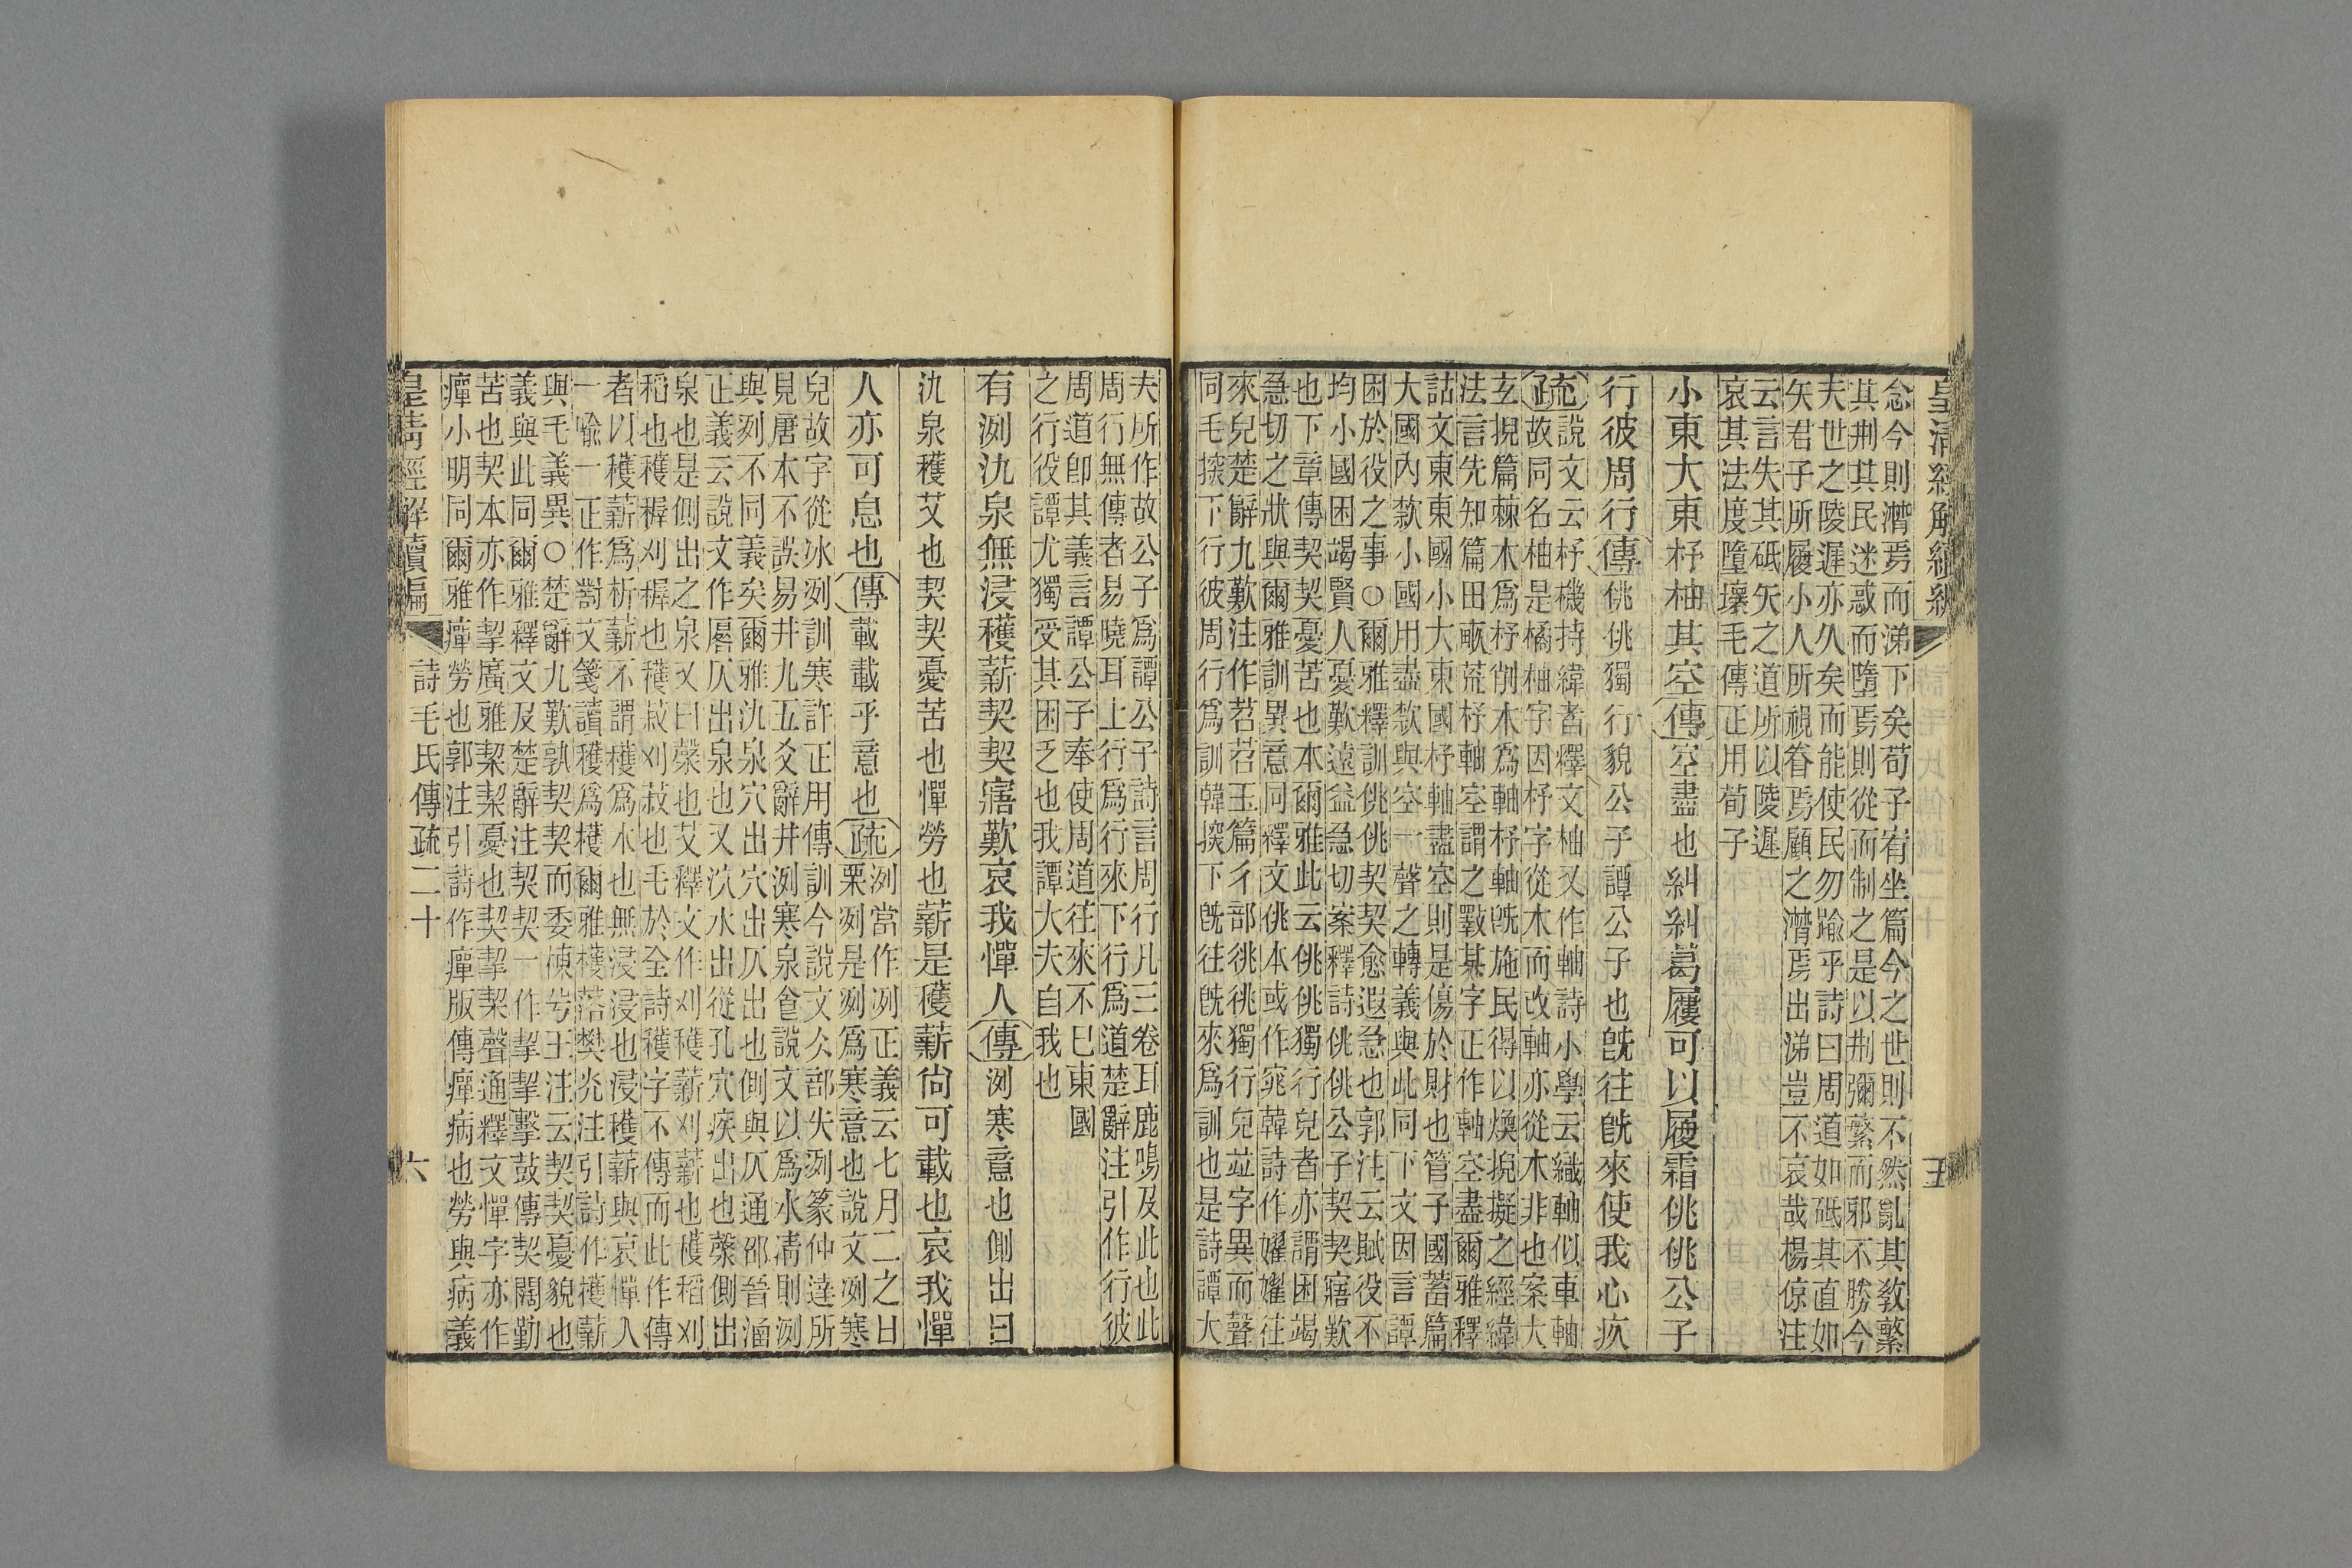 皇清經解續編
五
念今則潸焉而涕下矣荀子宥坐篇今之世則不然亂其教繁
其荆其民迷惑而墮焉則從而制之是以荆彌繁而邪不勝今
夫世之陵遲亦久矣而能使民勿踰乎詩曰周道如砥其直如
矢君子所履小人所視眷焉顧之潸焉出涕豈不哀哉楊倞注
云言失其砥矢之道所以陵遲
哀其法度墮壞毛傳正用荀子
小東大東杼柚其空傳空盡也糾糾葛屨可以履霜佻佻公子
行彼周行傳佻佻獨行貌公子譚公子也旣往旣來使我心疚
疏說文云杼機持緯者釋文柚又作軸詩小學云織軸似車軸
故同名柚是橘柚字因杼字從木而改軸亦從木非也案大
玄掜篇棘木爲杼削木爲軸杼軸旣施民得以煥掜擬之經緯
法言先知篇田畝荒杼軸空謂之斁某字正作軸空盡爾雅釋
詁文東東國小大東國杼軸盡空則是傷於財也管子國蓄篇
大國內款小國用盡款與空一聲之轉義與此同下文因言譚
困於役之事○爾雅釋訓佻佻契契愈遐急也郭注云賦役不
均小國困竭賢人憂歎遠益急切案釋詩佻佻公子契契寤歎
也下章傳契契憂苦也本爾雅此云佻佻獨行皃者亦謂困竭
急切之狀與爾雅訓異意同釋文佻本或作窕韓詩作嬥嬥往
來皃楚辭九歎注作苕苕玉篇彳部㣠㣠獨行皃竝字異而聲
同毛探下行彼周行爲訓韓探下旣往旣來爲訓也是詩譚大
夫所作故公子爲譚公子詩言周行凡三卷耳鹿鳴及此也此
周行無傳者易曉耳上行爲行來下行爲道楚辭注引作行彼
周道卽其義言譚公子奉使周道往來不已東國
之行役譚尤獨受其困乏也我譚大夫自我也
有洌氿泉無浸穫薪契契寤歎哀我憚人傳洌寒意也側出曰
氿泉穫艾也契契憂苦也憚勞也薪是穫薪尙可載也哀我憚
人亦可息也傳載載乎意也疏洌當作冽正義云七月二之日
栗冽是冽爲寒意也說文冽寒
皃故字從冰冽訓寒許正用傳訓今說文仌部失冽篆仲達所
見唐本不誤易井九五爻辭井洌寒泉食說文以爲水凊則洌
與冽不同義矣爾雅氿泉穴出穴出仄出也側與仄通郤晉涵
正義云說文作厬仄出泉也又氿水出從孔穴疾出也槃側出
泉也是側出之泉又曰漀也艾釋文作刈穫薪刈薪也穫稻刈
稻也穫穉刈穉也穫菽刈菽也毛於全詩穫字不傳而此作傳
者以穫薪爲析薪不謂穫爲木也無浸浸也浸穫薪與哀憚人
一喩一正作對文箋讀穫爲檴爾雅檴落樊光注引詩作檴薪
與毛義異○楚辭九歎孰契契而委棟兮王注云契契憂貌也
義與此同爾雅釋文及楚辭注契契一作挈挈擊鼓傳契闊勤
苦也契本亦作挈廣雅栔栔憂也契挈栔聲通釋文憚字亦作
癉小明同爾雅癉勞也郭注引詩作癉版傳癉病也勞與病義
皇淸經解續編
詩毛氏傳疏二十
六